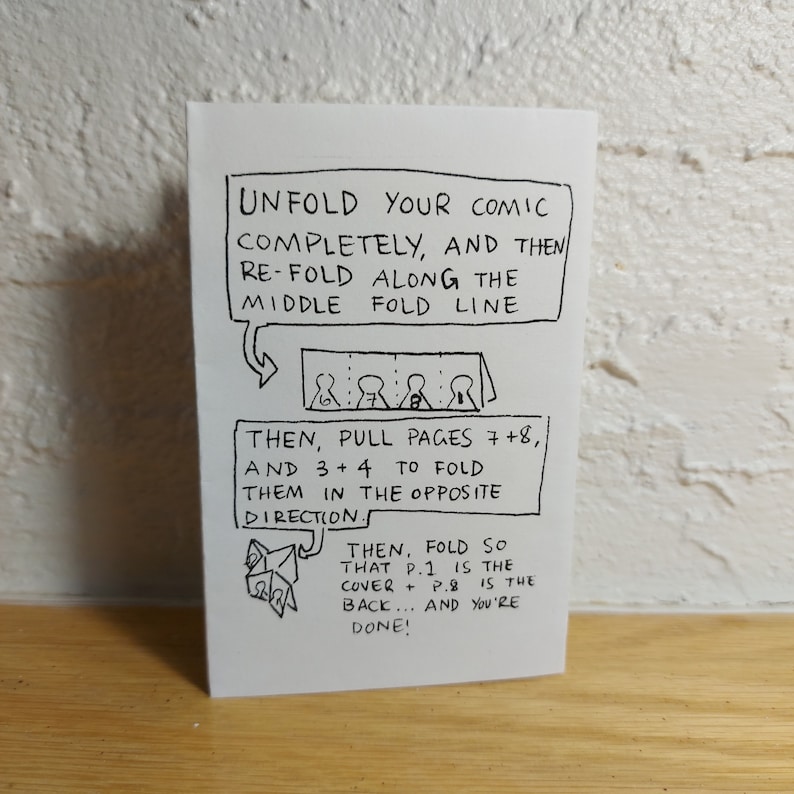 UNFOLD YOUR COMIC
COMPLETELY, AND THEN
RE-FOLD ALONG THE
MIDDLE FOLD LINE
6 7 8 1
THEN, PULL PAGES 7+8,
AND 3+4 TO FOLD
THEM IN THE OPPOSITE
DIRECTION.
THEN, FOLD SO
THAT P.1 IS THE
COVER + P.8 IS THE
BACK... AND YOU'RE
DONE!